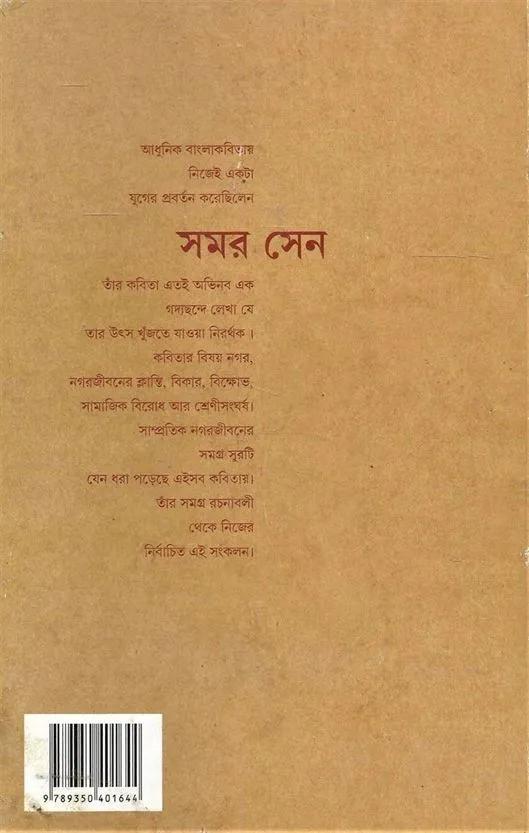 আধুনিক বাংলাকবিতায়
নিজেই একটা
যুগের প্রবর্তন করেছিলেন
সমর সেন
তাঁর কবিতা এতই অভিনব এক
গদ্যছন্দে লেখা যে
তার উৎস খুঁজতে যাওয়া নিরর্থক।
কবিতার বিষয় নগর,
নগরজীবনের ক্লান্তি, বিকার, বিক্ষোভ,
সামাজিক বিরোধ আর শ্রেণীসংঘর্ষ।
সাম্প্রতিক নগরজীবনের
সমগ্র সুরটি
যেন ধরা পড়েছে এইসব কবিতায়।
তাঁর সমগ্র রচনাবলী
থেকে নিজের
নির্বাচিত এই সংকলন।
9 789350 401644